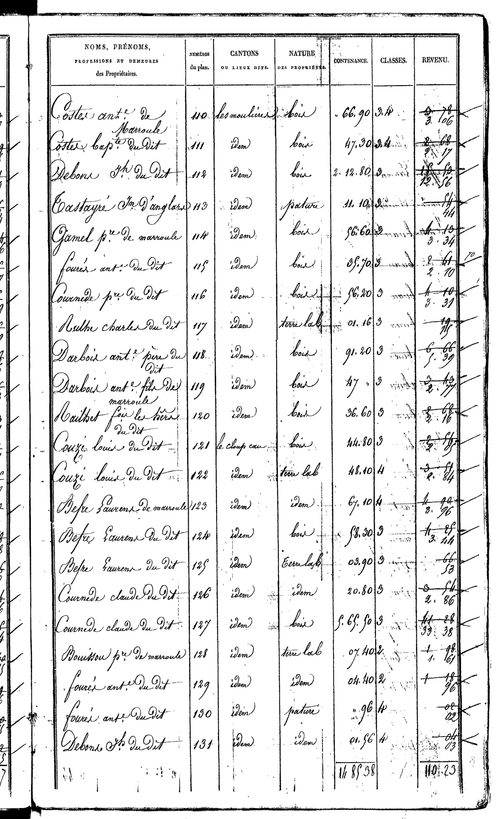 NOMS, PRÉNOMS, PROFESSIONS ET DEMEURES des Propriétaires. NUMÉROS du plan. CANTONS OU LIEUX DITS. NATURE DES PROPRIÉTÉS. CONTENANCE. CLASSES. REVENU.
Costes ant.e de Marroule 110 les moulières bois 66.90 3.4 3 06
Costes bap.te du dit 111 idem bois 47.30 3.4 2 17
Debons Jh du dit 112 idem bois 2.12.80 3 12 56
Tastayré Jn d'anglars 113 idem pature 11.10 3 44
Gamel p.re de marroule 114 idem bois 56.60 3 3.34
fourés ant.e du dit 115 idem bois 35.70 3 2 10
Cournede p.re du dit 116 idem bois 56.20 3 3.31
Ruthe charles du dit 117 idem terre lab 01.16 3
Darbois ant.e père du dit 118 idem bois 91.20 3 5 39
Darbois ant.e fils de marroule 119 idem bois 47 " 3 2 77
du dit 120 idem bois 36.60 3 2 16
Couzi louis du dit 121 le cloup cau bois 44.80 3
Couzi louis du dit 122 idem terre lab 48.10 4 2 84
Besse Laurens de marroule 123 idem idem 67.10 4 3 96
Besse Laurens du dit 124 idem bois 58.30 3 3.44
Besse Laurens du dit 125 idem Terre lab 03.90 3 53
Cournede claude du dit 126 idem idem 20.80 3 2.86
Cournede claude du dit 127 idem bois 5.65.50 3 33.38
Bouissou p.re de marroule 128 idem terre lab 07.40 2 1.61
fourés ant.e du dit 129 idem idem 04.40 2 96
fourés ant.e du dit 130 idem pature ".96 4 02
Debons Jh du dit 131 idem idem 01.56 4 03
14 85 38 110.23